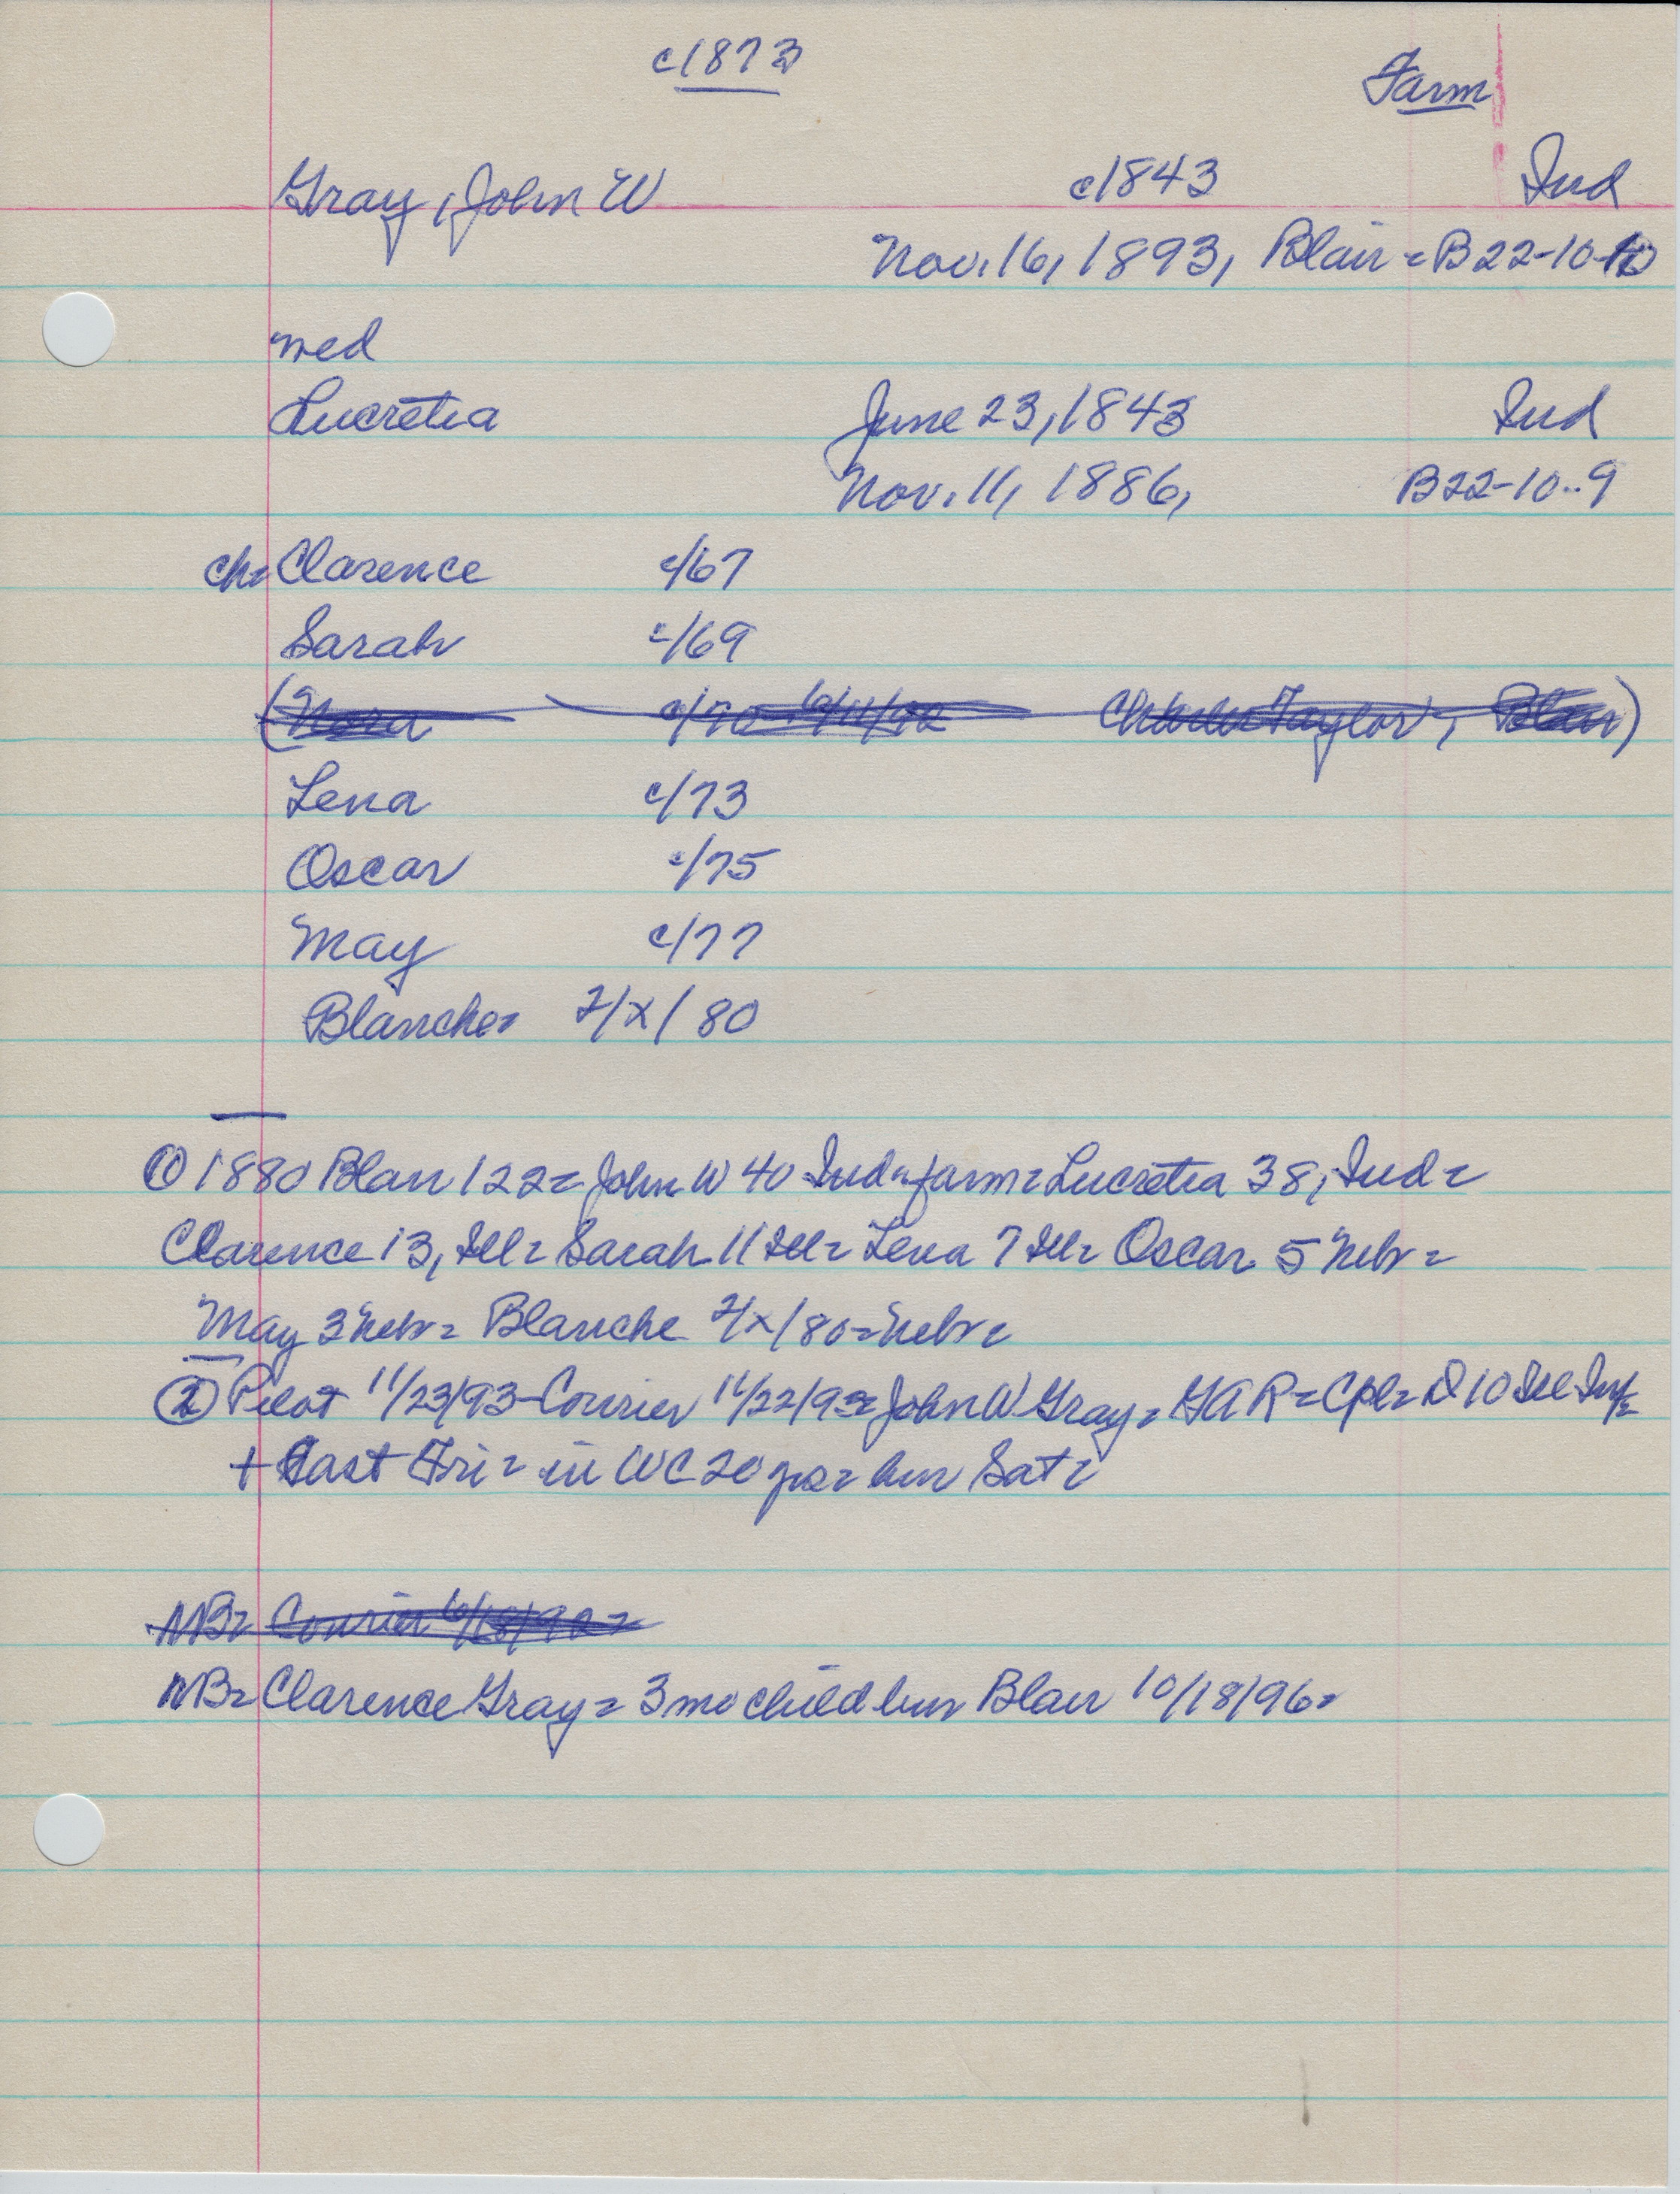 c1873
Farm
Gray, John W c1843 Ind
Nov. 16, 1893, Blair = B22-10-10
med
Lucretia June 23, 1843 Ind
Nov. 11, 1886, B22-10-9
ch= Clarence c/67
Sarah c/69
(Nora c/70 6/11/92 Charles Taylor, Blair)
Lena c/73
Oscar c/75
May c/77
Blanche= 2/x/80
① 1880 Blair 122= John W 40 Ind=farm= Lucretia 38, Ind=
Clarence 13, Ill= Sarah 11 Ill= Lena 7 Ill= Oscar 5 Nebr=
May 3 Nebr= Blanche 2/x/80=Nebr=
② Pilot 11/23/93-Courier 11/22/93= John W Gray= GAR= Cpl= D 10 Ill Inf=
+ last Fri= in WC 20 yrs= bur Sat=
NB= Courier 6/18/92=
NB= Clarence Gray= 3 mo child bur Blair 10/18/96=